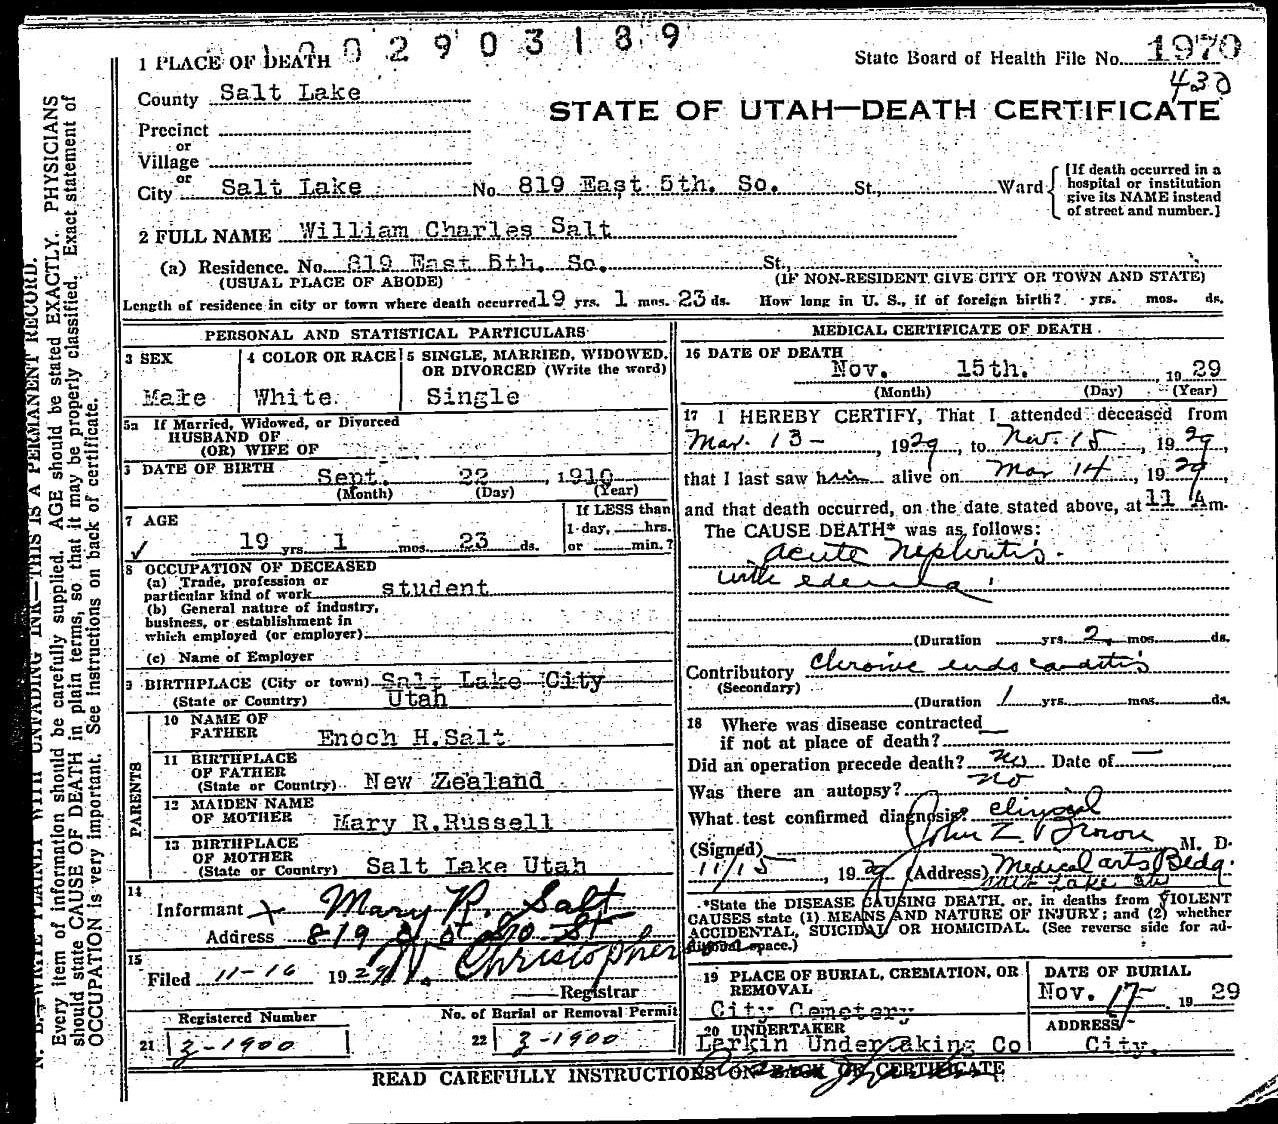 1 0 0 2 9 0 3 1 8 9
1 PLACE OF DEATH
State Board of Health File No. 1970
430
County Salt Lake
STATE OF UTAH—DEATH CERTIFICATE
Precinct
or
Village
or
City Salt Lake No. 819 East 5th. So. St., Ward
[If death occurred in a hospital or institution give its NAME instead of street and number.]
2 FULL NAME William Charles Salt
(a) Residence. No. 819 East 5th. So. St.
(USUAL PLACE OF ABODE) (IF NON-RESIDENT GIVE CITY OR TOWN AND STATE)
Length of residence in city or town where death occurred 19 yrs. 1 mos. 23 ds. How long in U. S., if of foreign birth? yrs. mos. ds.
PERSONAL AND STATISTICAL PARTICULARS
3 SEX
Male
4 COLOR OR RACE
White
5 SINGLE, MARRIED, WIDOWED, OR DIVORCED (Write the word)
Single
5a If Married, Widowed, or Divorced
HUSBAND OF
(OR) WIFE OF
DATE OF BIRTH
Sept. 22, 1910
(Month) (Day) (Year)
7 AGE
✓ 19 yrs. 1 mos. 23 ds.
If LESS than
1 day, hrs.
or min.?
8 OCCUPATION OF DECEASED
(a) Trade, profession or
particular kind of work student
(b) General nature of industry,
business, or establishment in
which employed (or employer)
(c) Name of Employer
9 BIRTHPLACE (City or town) Salt Lake City
(State or Country) Utah
PARENTS
10 NAME OF
FATHER Enoch H.Salt
11 BIRTHPLACE
OF FATHER
(State or Country) New Zealand
12 MAIDEN NAME
OF MOTHER Mary R.Russell
13 BIRTHPLACE
OF MOTHER
(State or Country) Salt Lake Utah
14
Informant x Mary R. Salt
Address 819 E 5t So. St
15
Filed 11-16 1929 Christopher
Registrar
Registered Number
21 3-1900
No. of Burial or Removal Permit
22 3-1900
MEDICAL CERTIFICATE OF DEATH
16 DATE OF DEATH
Nov. 15th. 1929
(Month) (Day) (Year)
17 I HEREBY CERTIFY, That I attended deceased from
Mar. 13 - 1929, to Nov. 15, 1929,
that I last saw him alive on Mar 14, 1929,
and that death occurred, on the date stated above, at 11 Am.
The CAUSE DEATH* was as follows:
acute nephritis.
with edema
(Duration yrs. 2 mos. ds.
Contributory Chronic endocarditis
(Secondary)
(Duration 1 yrs. mos. ds.
18 Where was disease contracted
if not at place of death?
Did an operation precede death? no Date of —
Was there an autopsy? no
What test confirmed diagnosis? clinical
(Signed) John Z Brown M. D.
11/15, 1929 (Address) Medical arts Bldg.
Salt Lake
*State the DISEASE CAUSING DEATH, or, in deaths from VIOLENT
CAUSES state (1) MEANS AND NATURE OF INJURY; and (2) whether
ACCIDENTAL, SUICIDAL OR HOMICIDAL. (See reverse side for ad-
ditional space.)
19 PLACE OF BURIAL, CREMATION, OR
REMOVAL
City Cemetery
DATE OF BURIAL
Nov. 17- 1929
20 UNDERTAKER
Larkin Undertaking Co
ADDRESS
City.
READ CAREFULLY INSTRUCTIONS ON BACK OF CERTIFICATE
N. B.—WRITE PLAINLY WITH UNFADING INK—THIS IS A PERMANENT RECORD.
Every item of information should be carefully supplied. AGE should be stated EXACTLY. PHYSICIANS
should state CAUSE OF DEATH in plain terms, so that it may be properly classified. Exact statement of
OCCUPATION is very important. See Instructions on back of certificate.